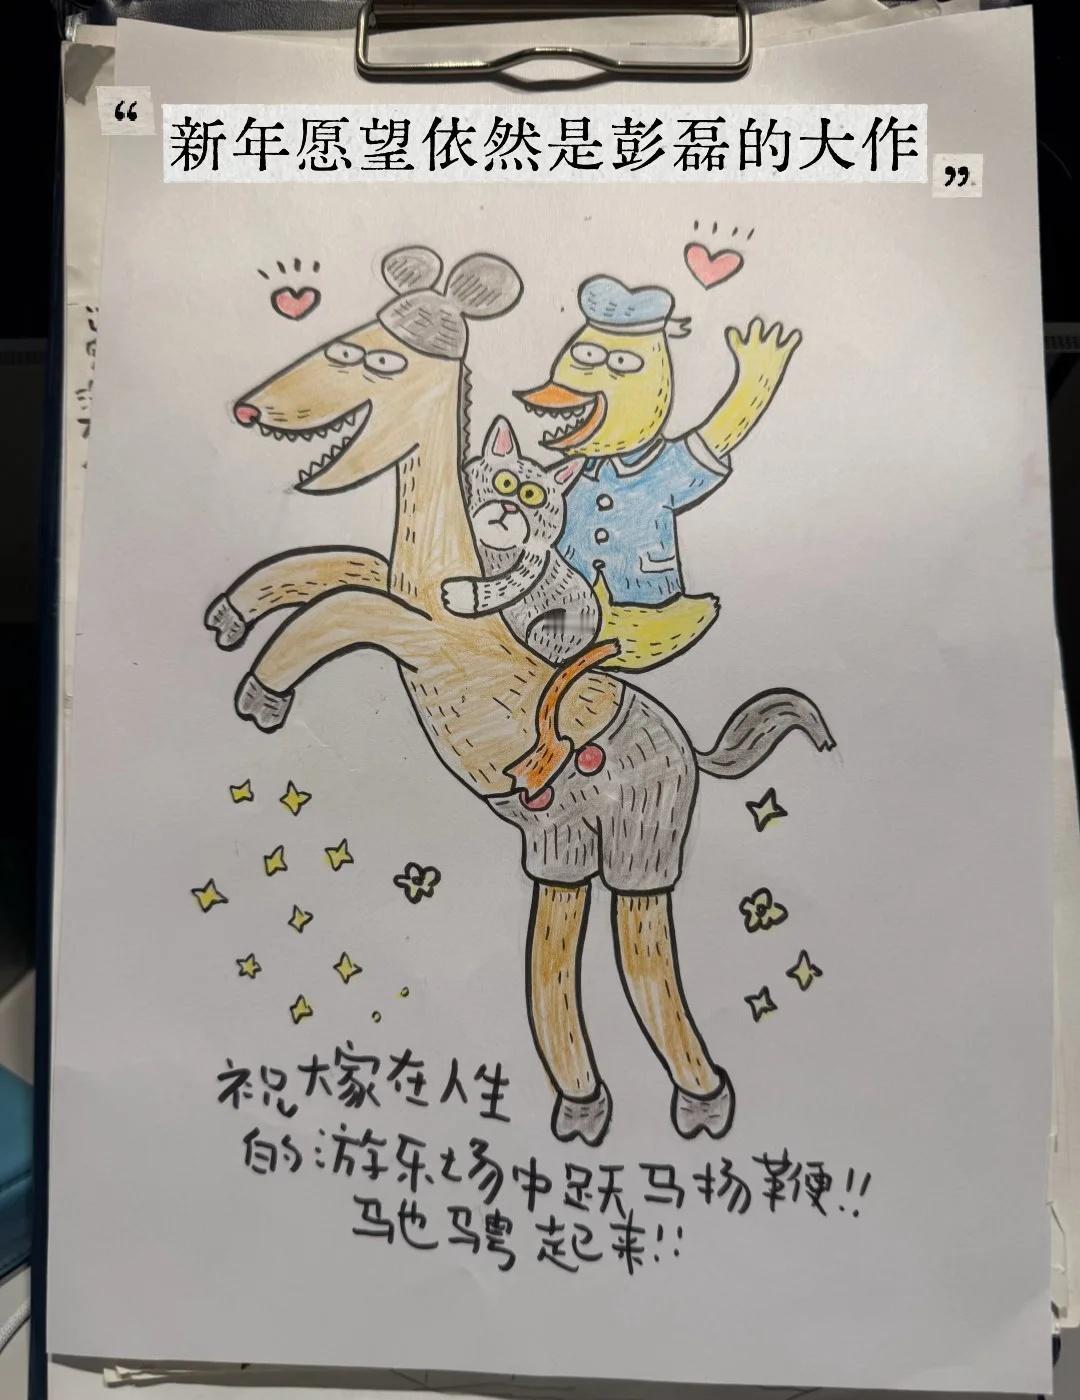 “新年愿望依然是彭磊的大作”
祝大家在人生
的游乐场中跃马扬鞭!!
驰骋起来!!